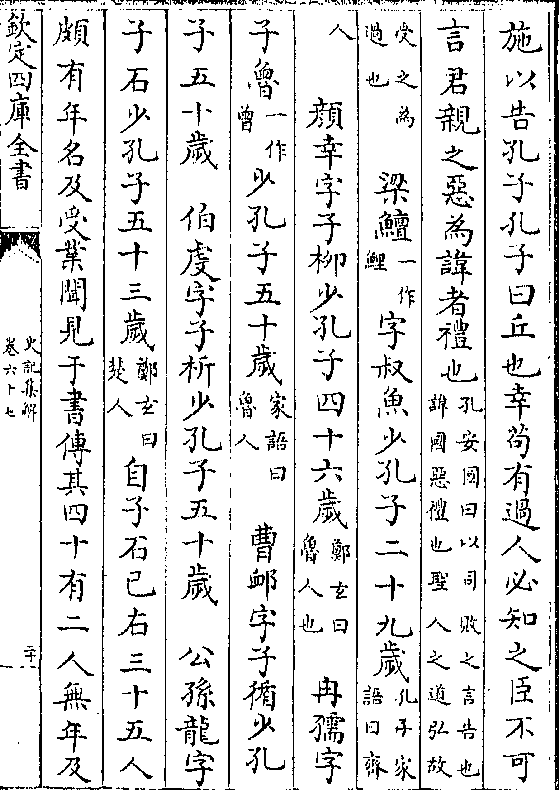 施以告孔子孔子曰丘也幸苟有過人必知之臣不可
言君親之惡為諱者禮也孔安國曰以司敗之言告也諱國惡禮也聖人之道弘故
受之為過也　梁鱣一作鯉字叔魚少孔子二十九歲孔子家語曰齊
人　顏幸字子柳少孔子四十六歲鄭玄曰魯人也　冉孺字
子魯一作曾少孔子五十歲家語曰魯人　曹卹字子循少孔
子五十歲　伯虔字子析少孔子五十歲　公孫龍字
子石少孔子五十三歲鄭玄曰楚人自子石已右三十五人
頗有年名及受業聞見于書傳其四十有二人無年及
欽定四庫全書
史記集解
卷六十七
二十